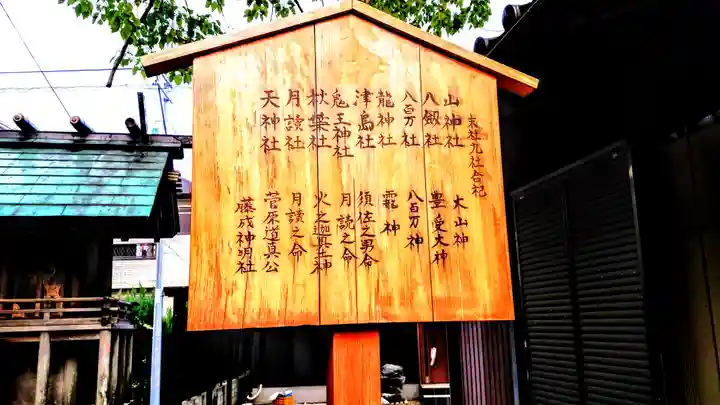 末社九社合祀
山神社 大山神
八劔社 豊愛大神
八百万社 八百万神
龍神社 龗神
津島社 須佐之男命
兎王神社 月読之命
秋葉社 火之迦具土神
月讀社 月讀之命
天神社 菅原道真公
藤成神明社